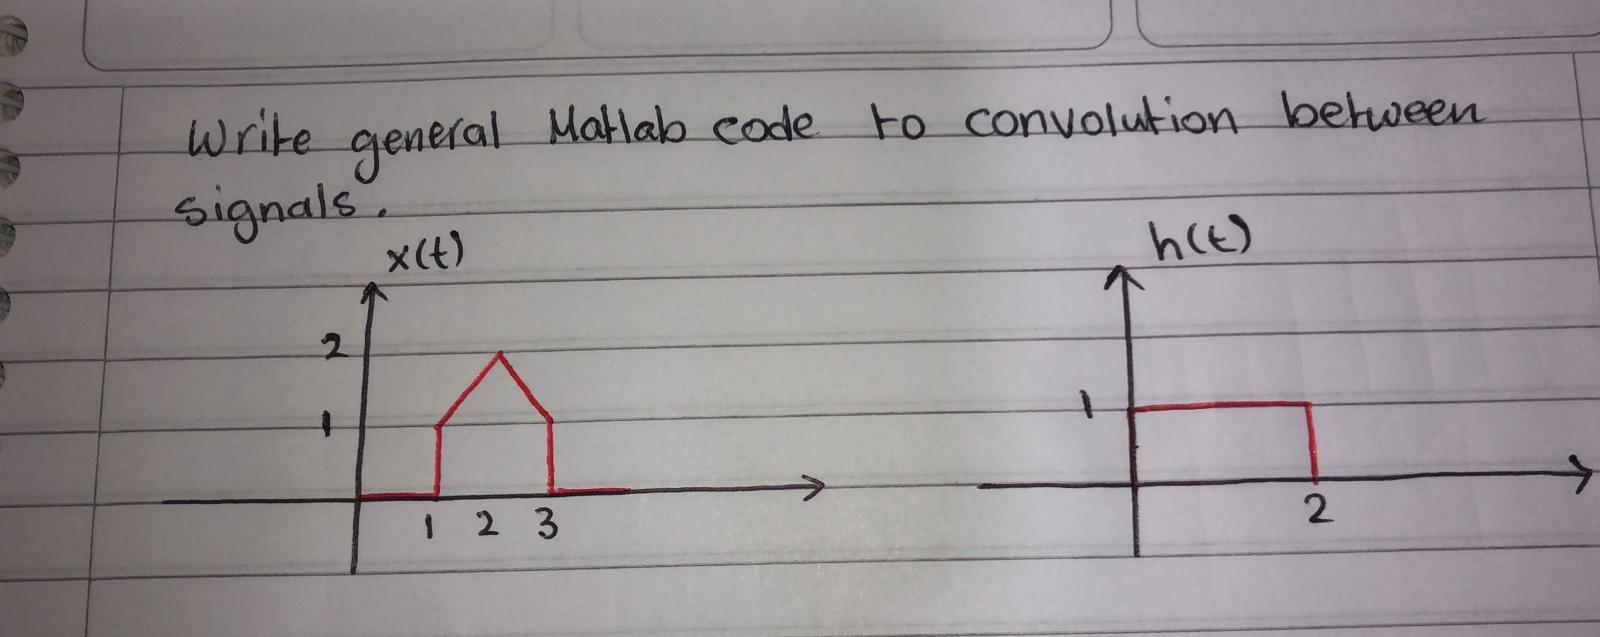 Write general Matlab code to convolution between
signals.
x(t)
h(t)
2
1
1
1 2 3
2